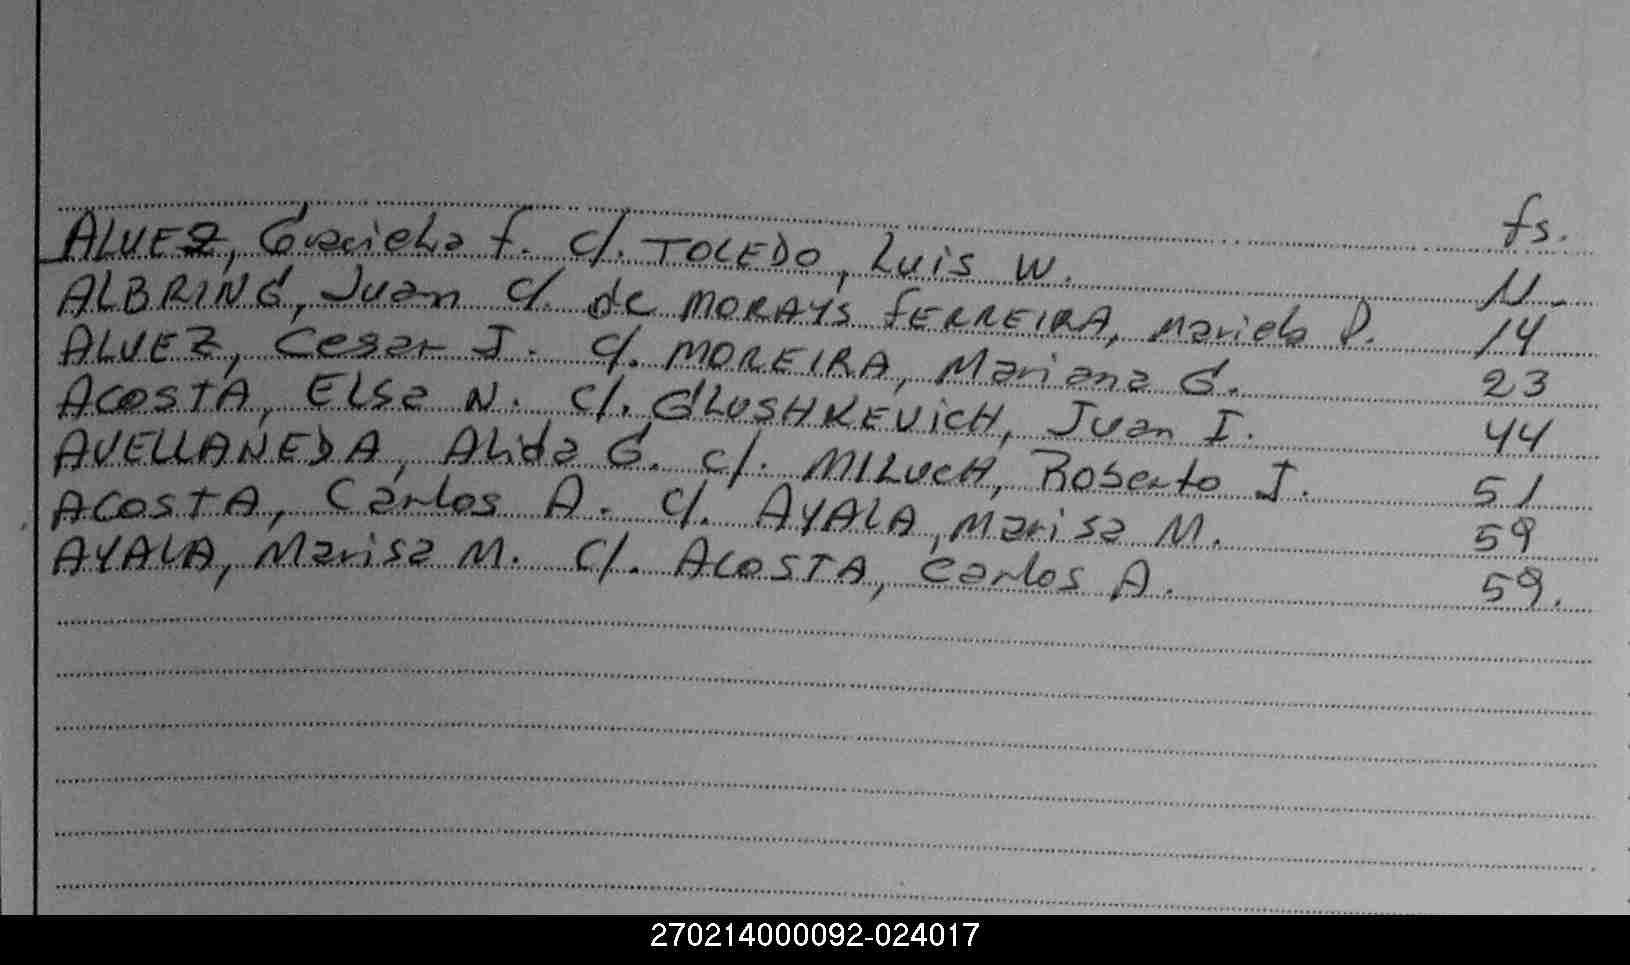 fs.
ALVEZ, Graciela F. c/. TOLEDO, Luis W. 11.-
ALBRING, Juan c/. de MORAYS FERREIRA, Mariela D. 14
ALVEZ, Cesar J. c/. MOREIRA, Mariana G. 23
ACOSTA, Elsa N. c/. GLUSHKEVICH, Juan I. 44
AVELLANEDA, Alida G. c/. MILUCH, Roberto J. 51
ACOSTA, Carlos A. c/. AYALA, Marisa M. 59
AYALA, Marisa M. c/. ACOSTA, Carlos A. 59.
270214000092-024017